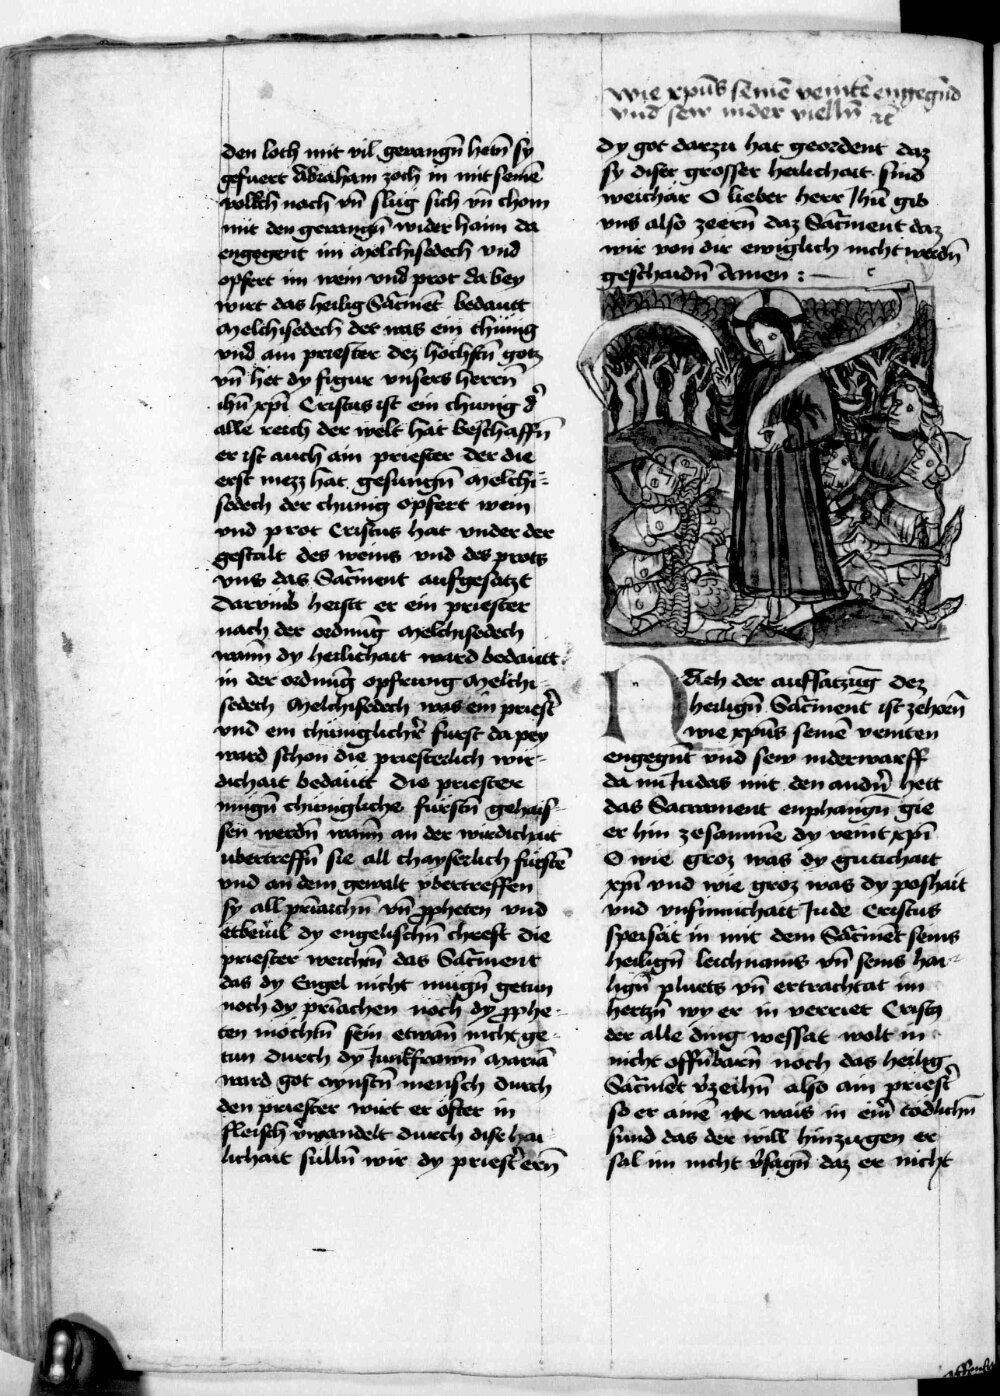 den loth mit vil gevangñ hetñ sy
gefuert Abraham zoch in mit seinē
volkch nach vñ slug sich vñ chom
mit den gevangñ wider haim da
engegent im Melchisedech vnd
opfert im wein vnd prot da bey
wirt das heilig Sacīment bedautt
Melchisedech der was ein chunig
vnd ain priester dez hochstñ gotz
vñ het dy figur vnsers herrñ
ihū xpī Cristus ist ein chunig d̾
alle reich der welt hat beschaffñ
er ist auch ain priester der die
erst mezz hat gesungñ Melchi-
sedech der chunig opfert wein
vnd prot Cristus hat vnder der
gestalt des weins vnd des prots
vns das Sacīment aufgesatzt
Darvmb heist er ein priester
nach der ordnūg Melchisedech
wann dy heilichait ward bedautt
in der ordnūg opfrung Melchi-
sedech Melchisedech was ein priest̾
vnd ein chuniglich̾ furst da pey
ward schon die priesterlich wir-
dichait bedautt Die priester
mugñ chunigliche furstñ gehais-
sen werdñ wann an der wirdichait
vbertreffñ sie all chayserlich furstē
vnd an dem gewalt vbertreffen
sy all pr̄iarchñ vñ p̄pheten vnd
dy engelischñ chreft Die
priester weichñ das Sacīment
das dy Engel nicht mugñ getun
noch dy pr̄iachen noch dy p̄phe-
ten mochtñ sein etwañ nicht ge-
tun durch dy Junkfrawñ Mariā
ward got aynstñ mensch durch
den priester wirt er ofter in
fleisch v̾wandelt durch dise hai-
lichait sullñ wir dy priest̾ erñ
Wie xpūs seinē veintē engegñd
vnd sew nider viellñ ꝛc̄
dy got darzu hat geordent daz
sy diser grosser heilichait sind
weichär O lieber herr Jhū gib
vns also zeerñ daz Sacīment daz
wir von dir ewiglich nicht werdñ
geschaidñ Amen :
Nach der auffsatzūg dez
heiligñ Sacīment ist zehorñ
wie xpūs seinē veinten
engegñt vnd sew niderwarff
da nū Judas mit den andñ̾ hett
das Sacrament enphangñ gie
er hin zesamme dy veint xpī
O wie groz was dy gutichait
xpī vnd wie groz was dy poshait
vnd vnsinnichait Jude Cristus
speisat in mit dem Sacīmēt seins
heiligñ leichnams vñ seins hai-
ligñ pluets vñ er trachtat im
hertzñ wy er in verriet Cristus
der alle ding wessat wolt in
nicht offñbarñ noch das heilig
Sacīmēt v̾zeihñ also ain priest̾
so er ainē wais in ein̄ todlichñ
sund das der will hinzugen er
sal im nicht v̾sagñ daz er nicht